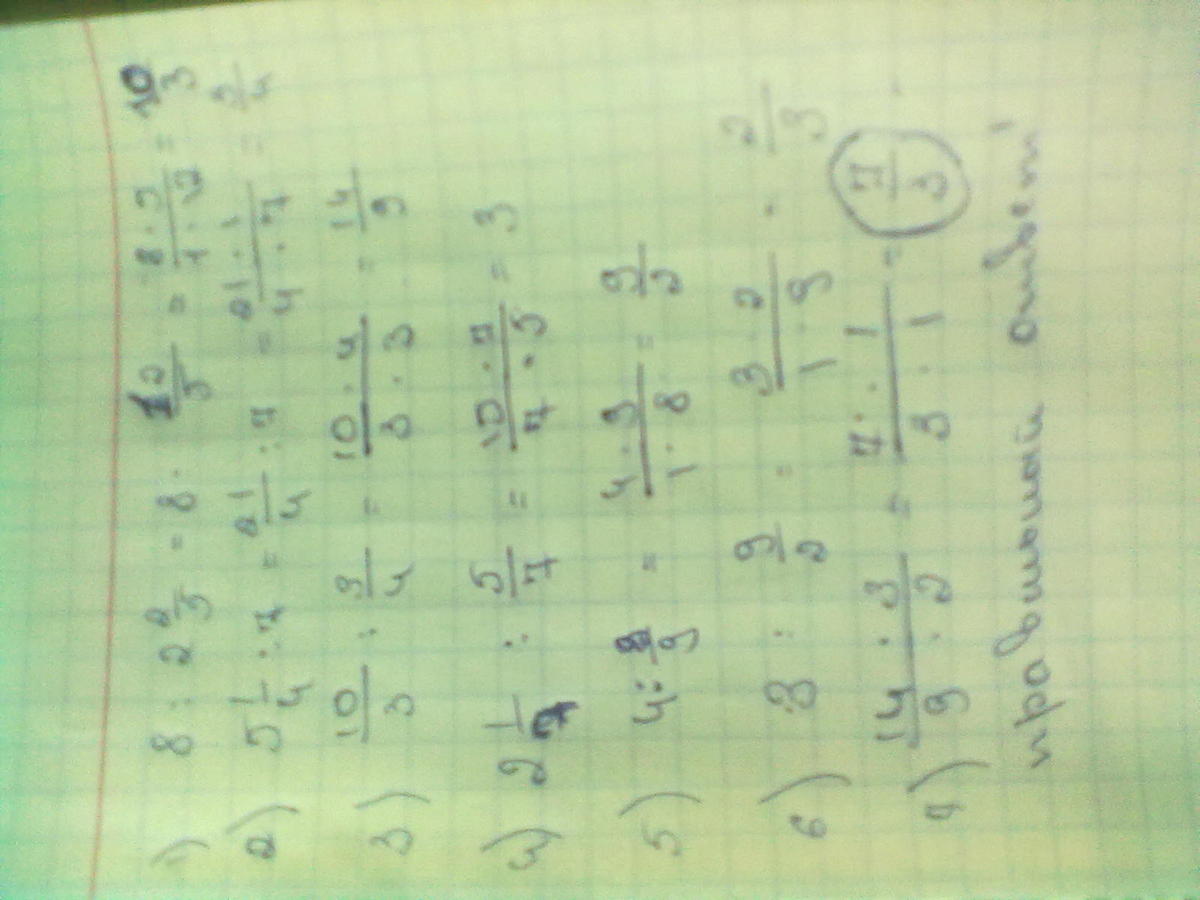 1) 8 : 2 2/5 = 8 · 12/5 = 8·5/1·12 = 10/3
2) 5 1/4 : 7 = 21/4 : 7 = 21·1/4·7 = 3/4
3) 10/3 : 3/4 = 10·4/3·3 = 14/9
4) 2 1/7 : 5/7 = 15·7/7·5 = 3
5) 4 : 8/9 = 4·9/1·8 = 9/2
6) 3 : 9/2 = 3·2/1·9 · 2/3
7) 14·3/9·2 = 7·1/3·1 = 7/3
правильный ответ!